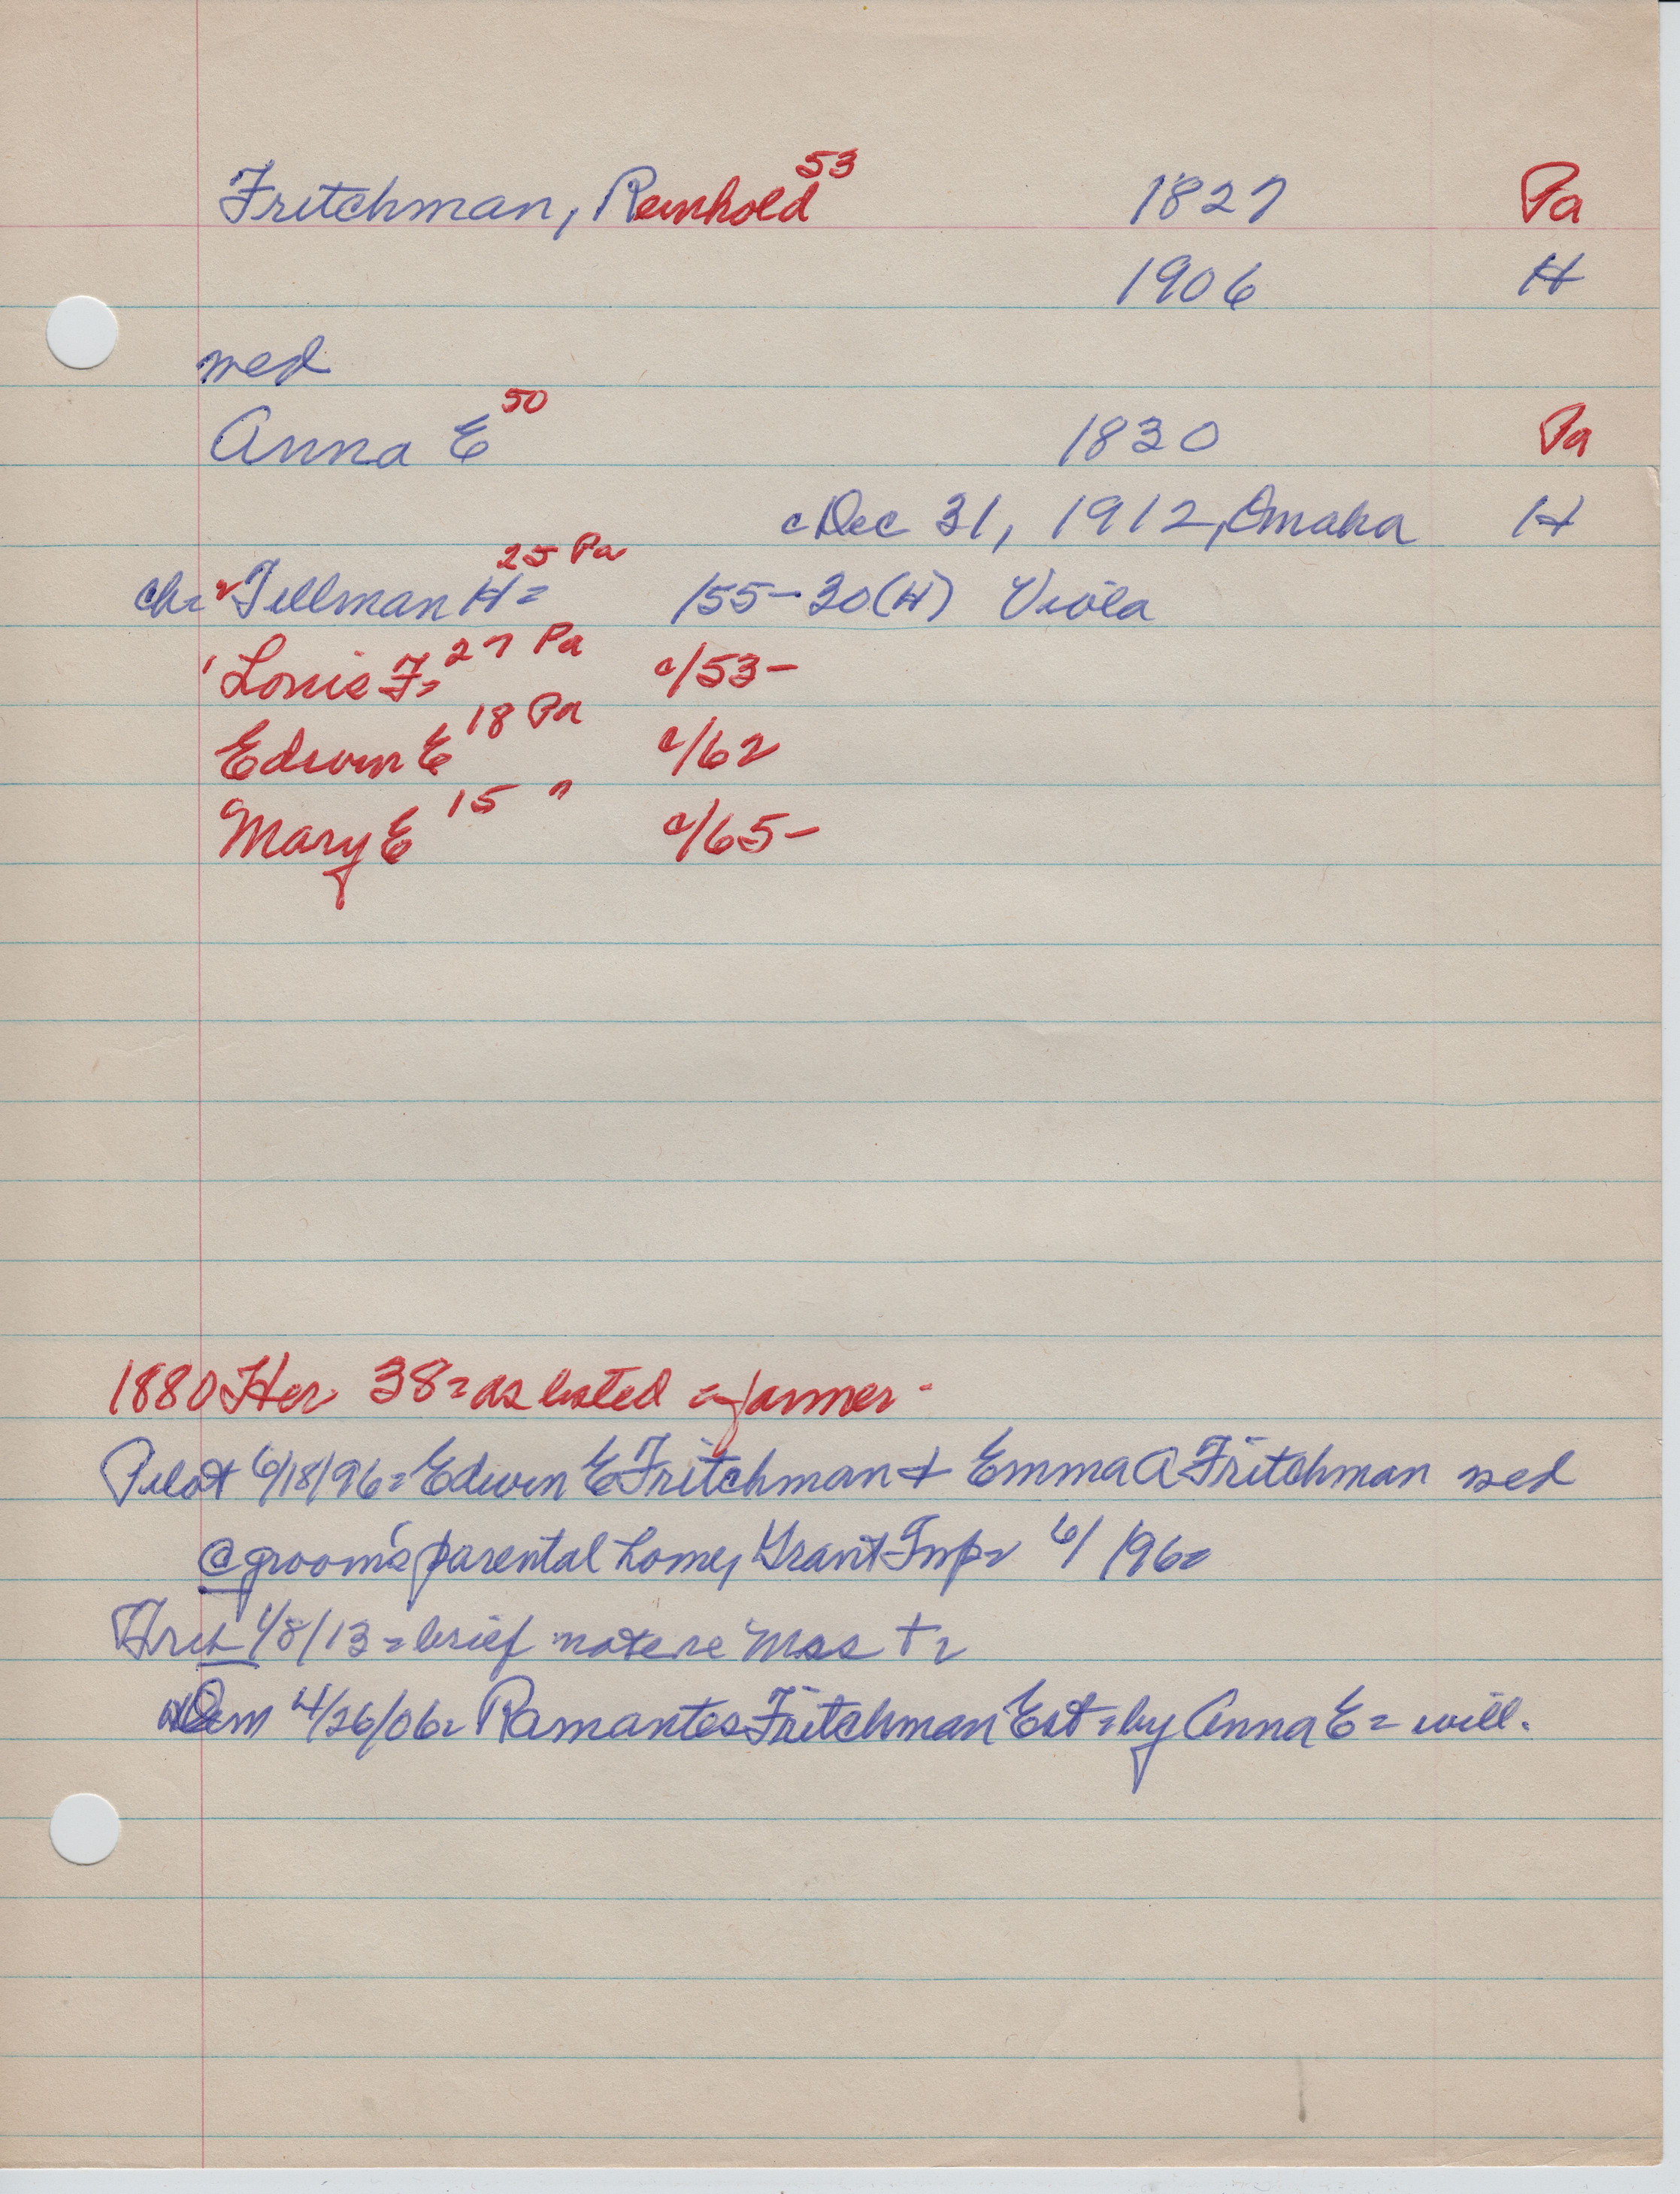 Fritchman, Reinhold 53 1827 Pa
1906 H
med
Anna E 50 1830 Pa
Dec 31, 1912, Omaha H
ch= 2 Tillman H= 25 Pa /55-30(H) Viola
1 Louis F= 27 Pa c/53-
Edwin E 18 Pa c/62
Mary E 15 " c/65-
1880 Her 38= as listed farmer-
Pilot 6/18/96= Edwin E Fritchman + Emma A Fritchman med
@ groom's parental home, Grant Tmp= 6/ /96=
1/8/13= brief note re Mrs +=
Dem 4/26/06= Ramantes Fritchman Est= by Anna E= will.